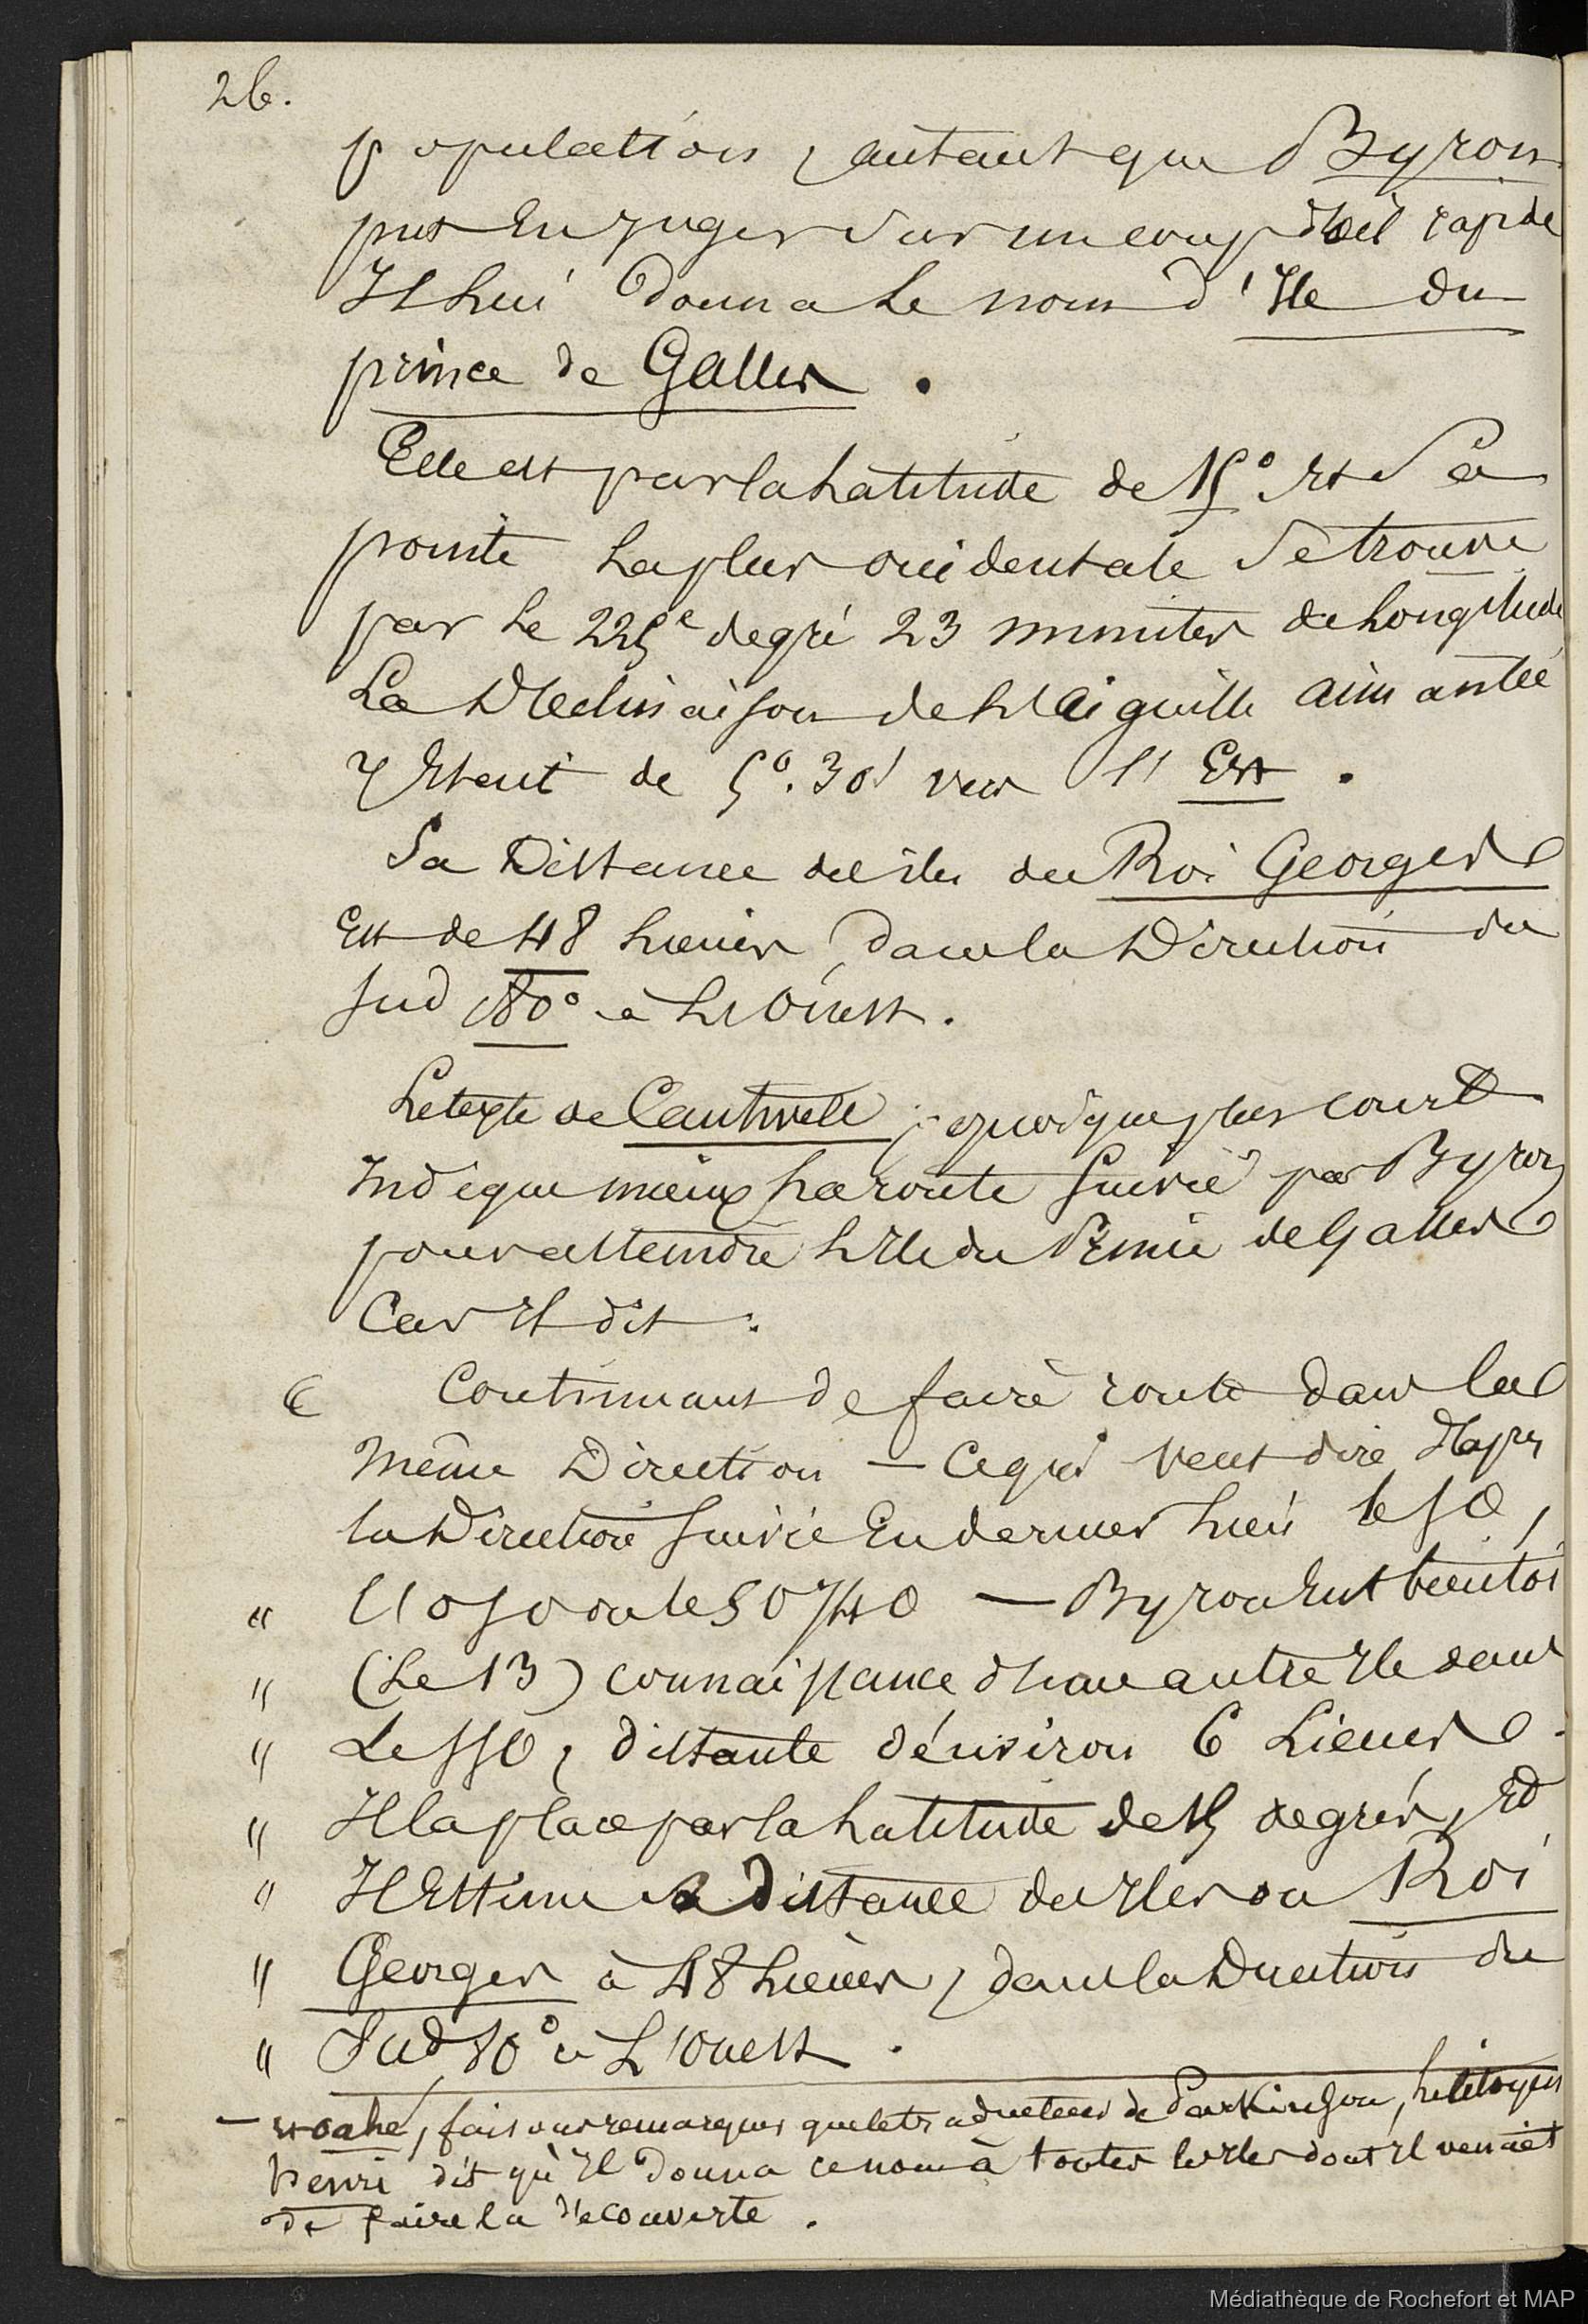 26.
population, autant que Byron
put En juger sur un coup d'œil rapide
Il Lui donna Le nom d'Ile du
prince de Galles.
Elle est par la Latitude de 15° Et sa
pointe La plus occidentale se trouve
par Le 225e degré 23 minutes de Longitude
La Declinaison de L'Aiguille aimantée
y Etait de 5°. 30' vers l'Est.
Sa Distance des iles du Roi Georges
Est de 48 Lieues, dans la Direction du
Sud 80° à L'Ouest.
Le texte de Cantwell, quoique plus court
Indique mieux La route suivie par Byron
pour atteindre L'Ile du Prince de Galles
Car Il dit :
« Continuant de faire route dans la
même Direction — Ce qui veut dire d'après
la Direction suivie En dernier Lieu le SO,
" l'OSO ou le SO 1/4 O — Byron Eut bientôt
" (Le 13) connaissance d'une autre Ile dans
" Le SSO, distante d'environ 6 Lieues.
" Il la place par la Latitude de 15 degrés, Et
" Il Estime sa Distance des Iles du Roi
" Georges à 48 Lieues, dans la Direction du
" Sud 80° à L'Ouest.
— , faisons remarquer que le traducteur de Parkinson, Le Citoyen
Henri dit qu'Il donna ce nom à toutes les Iles dont Il venait
de faire la découverte.
Médiathèque de Rochefort et MAP